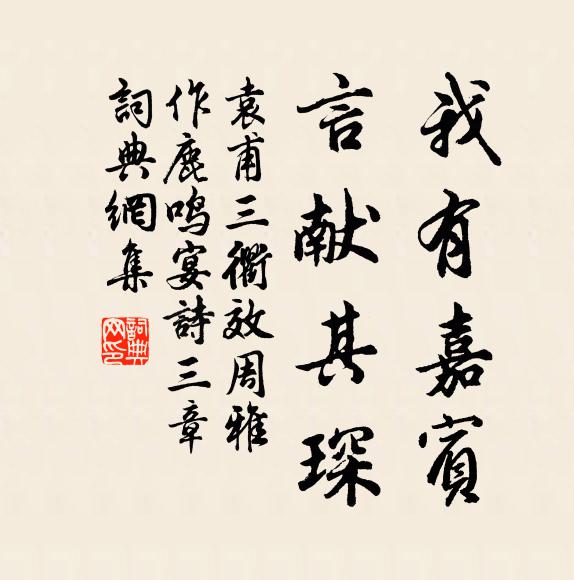 我有嘉賓
言献其琛
袁甫三衢效周雅
作鹿鸣宴詩三章
詞典網集
詞典网印